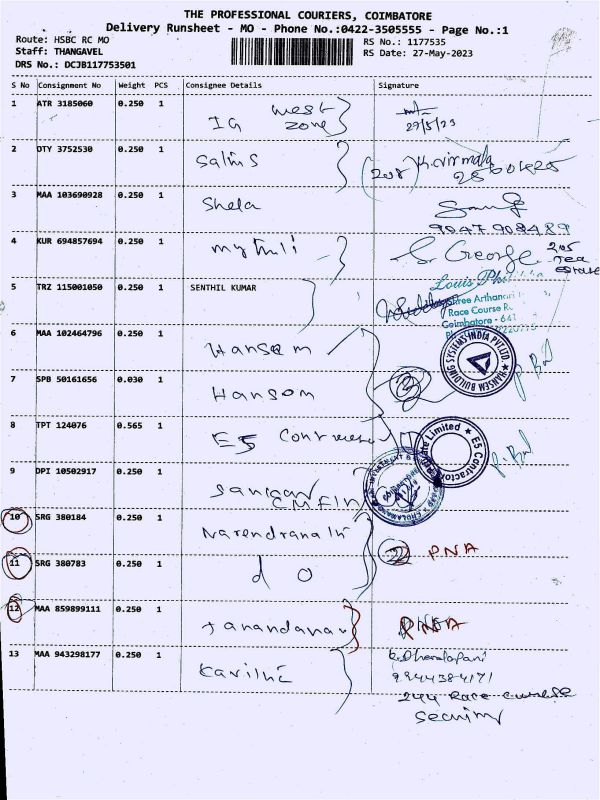 THE PROFESSIONAL COURIERS, COIMBATORE
Delivery Runsheet - MO - Phone No.:0422-3505555 - Page No.:1
Route: HSBC RC MO
RS No.: 1177535
Staff: THANGAVEL
RS Date: 27-May-2023
DRS No.: DCJB117753501
S No Consignment No Weight PCS Consignee Details Signature
1 ATR 3185060 0.250 1 IG west zone 27/5/23
2 DTY 3752530 0.250 1 Salins (208) K. Nirmala
3 MAA 103690928 0.250 1 Shela
9047908489
4 KUR 694857694 0.250 1 mythili S. George 205 Tea estate
5 TRZ 115001050 0.250 1 SENTHIL KUMAR
Louis Phi
Shree Arthanari
Race Course R
Coimbatore - 641
6 MAA 102464796 0.250 1 Hansem
HANSEM BUILDING SYSTEMS INDIA PVT LTD
7 SPB 50161656 0.030 1 Hansom 2
8 TPT 124076 0.565 1 E5
E5 Contractor Private Limited
9 DPI 10502917 0.250 1
10 SRG 380184 0.250 1 2 PNA
11 SRG 380783 0.250 1 d o
12 MAA 859899111 0.250 1 PNA
13 MAA 943298177 0.250 1
K. Dhandapani
9944384171
244 Race Course
Security